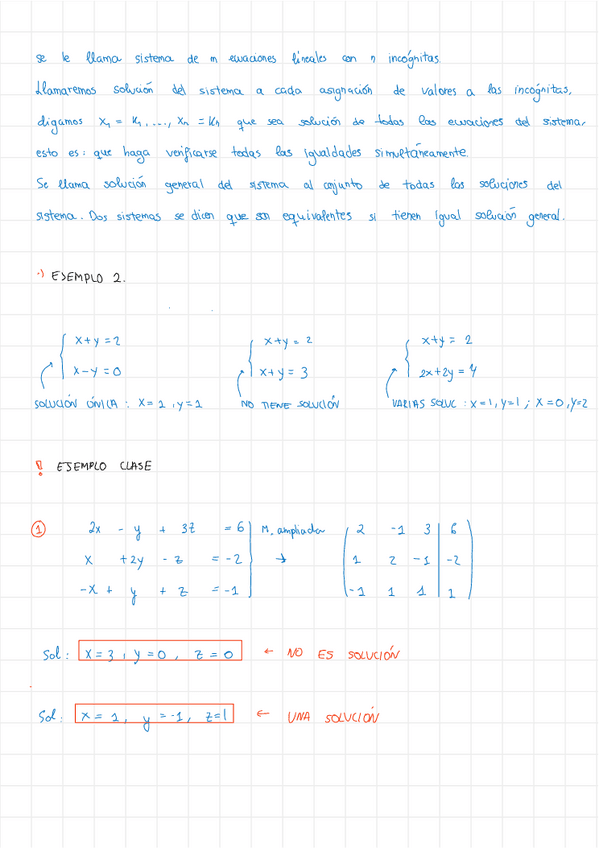 se le llama sistema de m ecuaciones lineales con n incógnitas.
Llamaremos solución del sistema a cada asignación de valores a las incógnitas,
digamos x₁ = k₁, ...., xₙ = kₙ que sea solución de todas las ecuaciones del sistema,
esto es: que haga verificarse todas las igualdades simultáneamente.
Se llama solución general del sistema al conjunto de todas las soluciones del
sistema. Dos sistemas se dicen que son equivalentes si tienen igual solución general.
·) EJEMPLO 2.
x+y = 2 x+y = 2 x+y = 2
x-y = 0 x+y = 3 2x+2y = 4
SOLUCIÓN ÚNICA : x=1 , y=1 NO TIENE SOLUCIÓN VARIAS SOLUC : x=1, y=1 ; x=0, y=2
! EJEMPLO CLASE
① 2x - y + 3z = 6 M. ampliada ( 2 -1 3 | 6 )
x +2y - z = -2 → 1 2 -1 | -2
-x + y + z = -1 -1 1 1 | 1
Sol: x=3, y=0, z=0 ← NO ES SOLUCIÓN
Sol: x=1, y=-1, z=1 ← UNA SOLUCIÓN